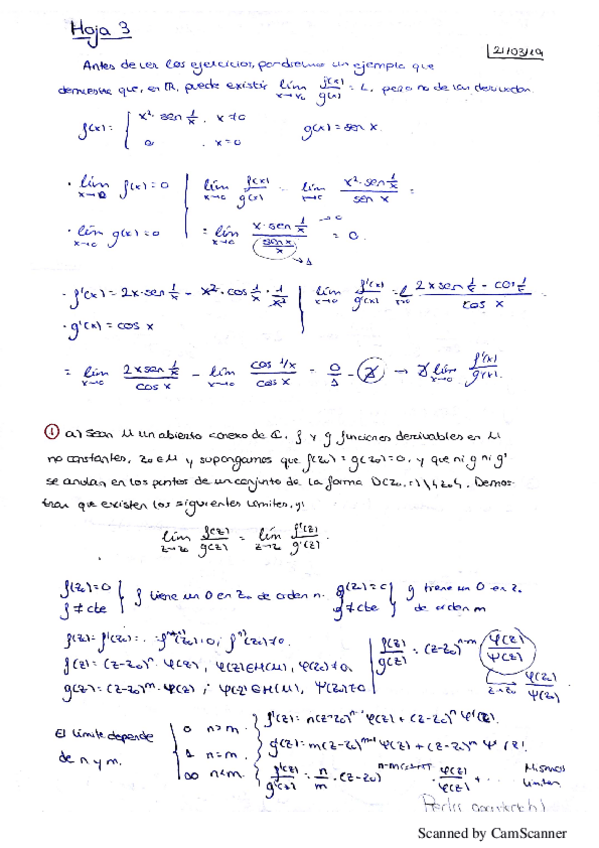 Hoja 3
21/03/19
Antes de ver los ejercicios, pondremos un ejemplo que
demuestre que, en ℝ, puede existir lim x→x₀ f(x)/g(x) = L, pero no de las derivadas.
f(x) = { x² · sen 1/x , x ≠ 0 g(x) = sen x
0 , x = 0
· lim x→0 f(x) = 0 | lim x→0 f(x)/g(x) = lim x→0 x² · sen 1/x / sen x =
· lim x→0 g(x) = 0 | = lim x→0 x · sen 1/x / (sen x / x) = 0.
· f'(x) = 2x · sen 1/x - x² · cos 1/x · 1/x² | lim x→0 f'(x)/g'(x) = 2x sen 1/x - cos 1/x / cos x
· g'(x) = cos x
= lim x→0 2x sen 1/x / cos x - lim x→0 cos 1/x / cos x = 0/1 - ∄ → ∄ lim x→0 f'(x)/g'(x).
① a) Sean U un abierto conexo de ℂ, f y g funciones derivables en U
no constantes, z₀ ∈ U y supongamos que f(z₀) = g(z₀) = 0, y que ni g ni g'
se anulan en los puntos de un conjunto de la forma D(z₀, r) \ {z₀}. Demos-
trar que existen los siguientes límites, y:
lim z→z₀ f(z)/g(z) = lim z→z₀ f'(z)/g'(z).
f(z₀) = 0 } f tiene un 0 en z₀ de orden n. g(z₀) = 0 } g tiene un 0 en z₀
f ≠ cte g ≠ cte de orden m
f(z₀) = f'(z₀) = ... = fⁿ⁻¹(z₀) = 0, fⁿ(z₀) ≠ 0.
f(z) = (z-z₀)ⁿ · φ(z), φ(z) ∈ H(U), φ(z₀) ≠ 0. | f(z)/g(z) = (z-z₀)ⁿ⁻ᵐ φ(z)/ψ(z)
g(z) = (z-z₀)ᵐ · ψ(z) ; ψ(z) ∈ H(U), ψ(z₀) ≠ 0 | z→z₀ φ(z₀)/ψ(z₀)
El límite depende { 0 n>m. } f'(z) = n(z-z₀)ⁿ⁻¹ φ(z) + (z-z₀)ⁿ φ'(z).
de n y m. { 1 n=m. } g'(z) = m(z-z₀)ᵐ⁻¹ ψ(z) + (z-z₀)ᵐ ψ'(z).
{ ∞ n<m. } f'(z)/g'(z) = n/m · (z-z₀) · φ(z)/ψ(z) + ... Mismos límites
Scanned by CamScanner